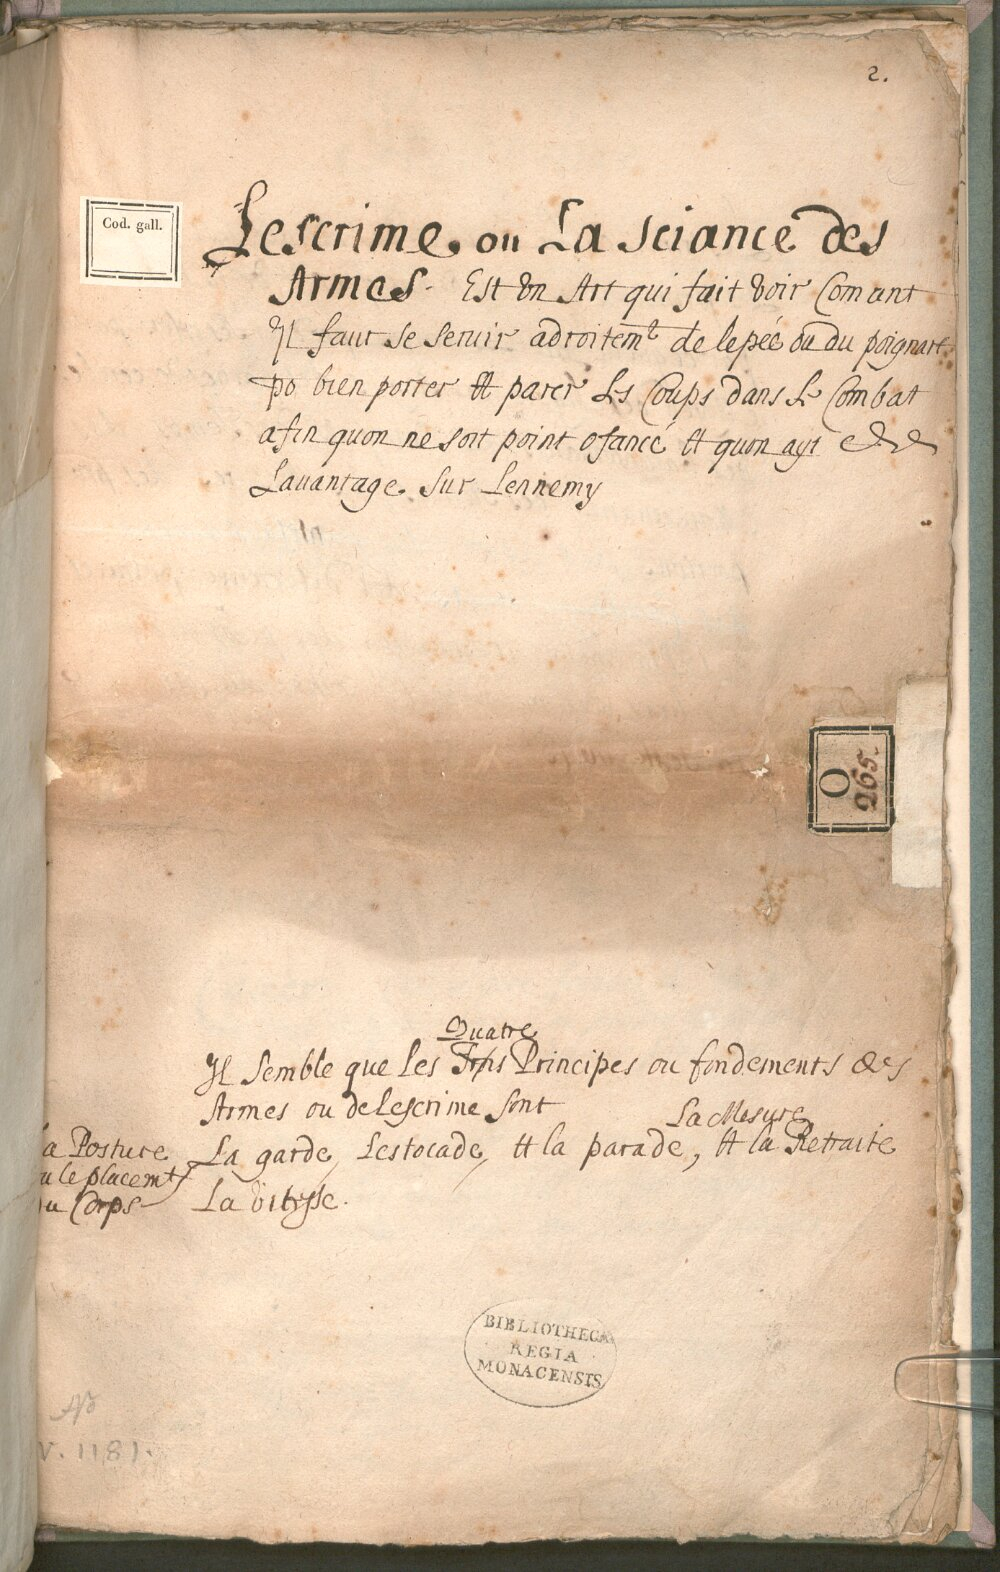 2.
Cod. gall.
Lescrime ou La sciance des
Armes. Est vn Art qui fait voir Comant
Il faut se seruir adroitemt de lepée ou du poignart
po bien porter et parer Les Coups dans Le Combat
afin quon ne soit point ofancé et quon ayt
Lauantage sur Lennemy
O
265.
Quatre
Il semble que les Trois Principes ou fondements des
Armes ou de Lescrime sont
La Mesure
La garde, Lestocade, et la parade, et la Retraite
La vitesse.
la Posture
ou le placemt
du Corps
BIBLIOTHECA
REGIA
MONACENSIS
V. 1181.